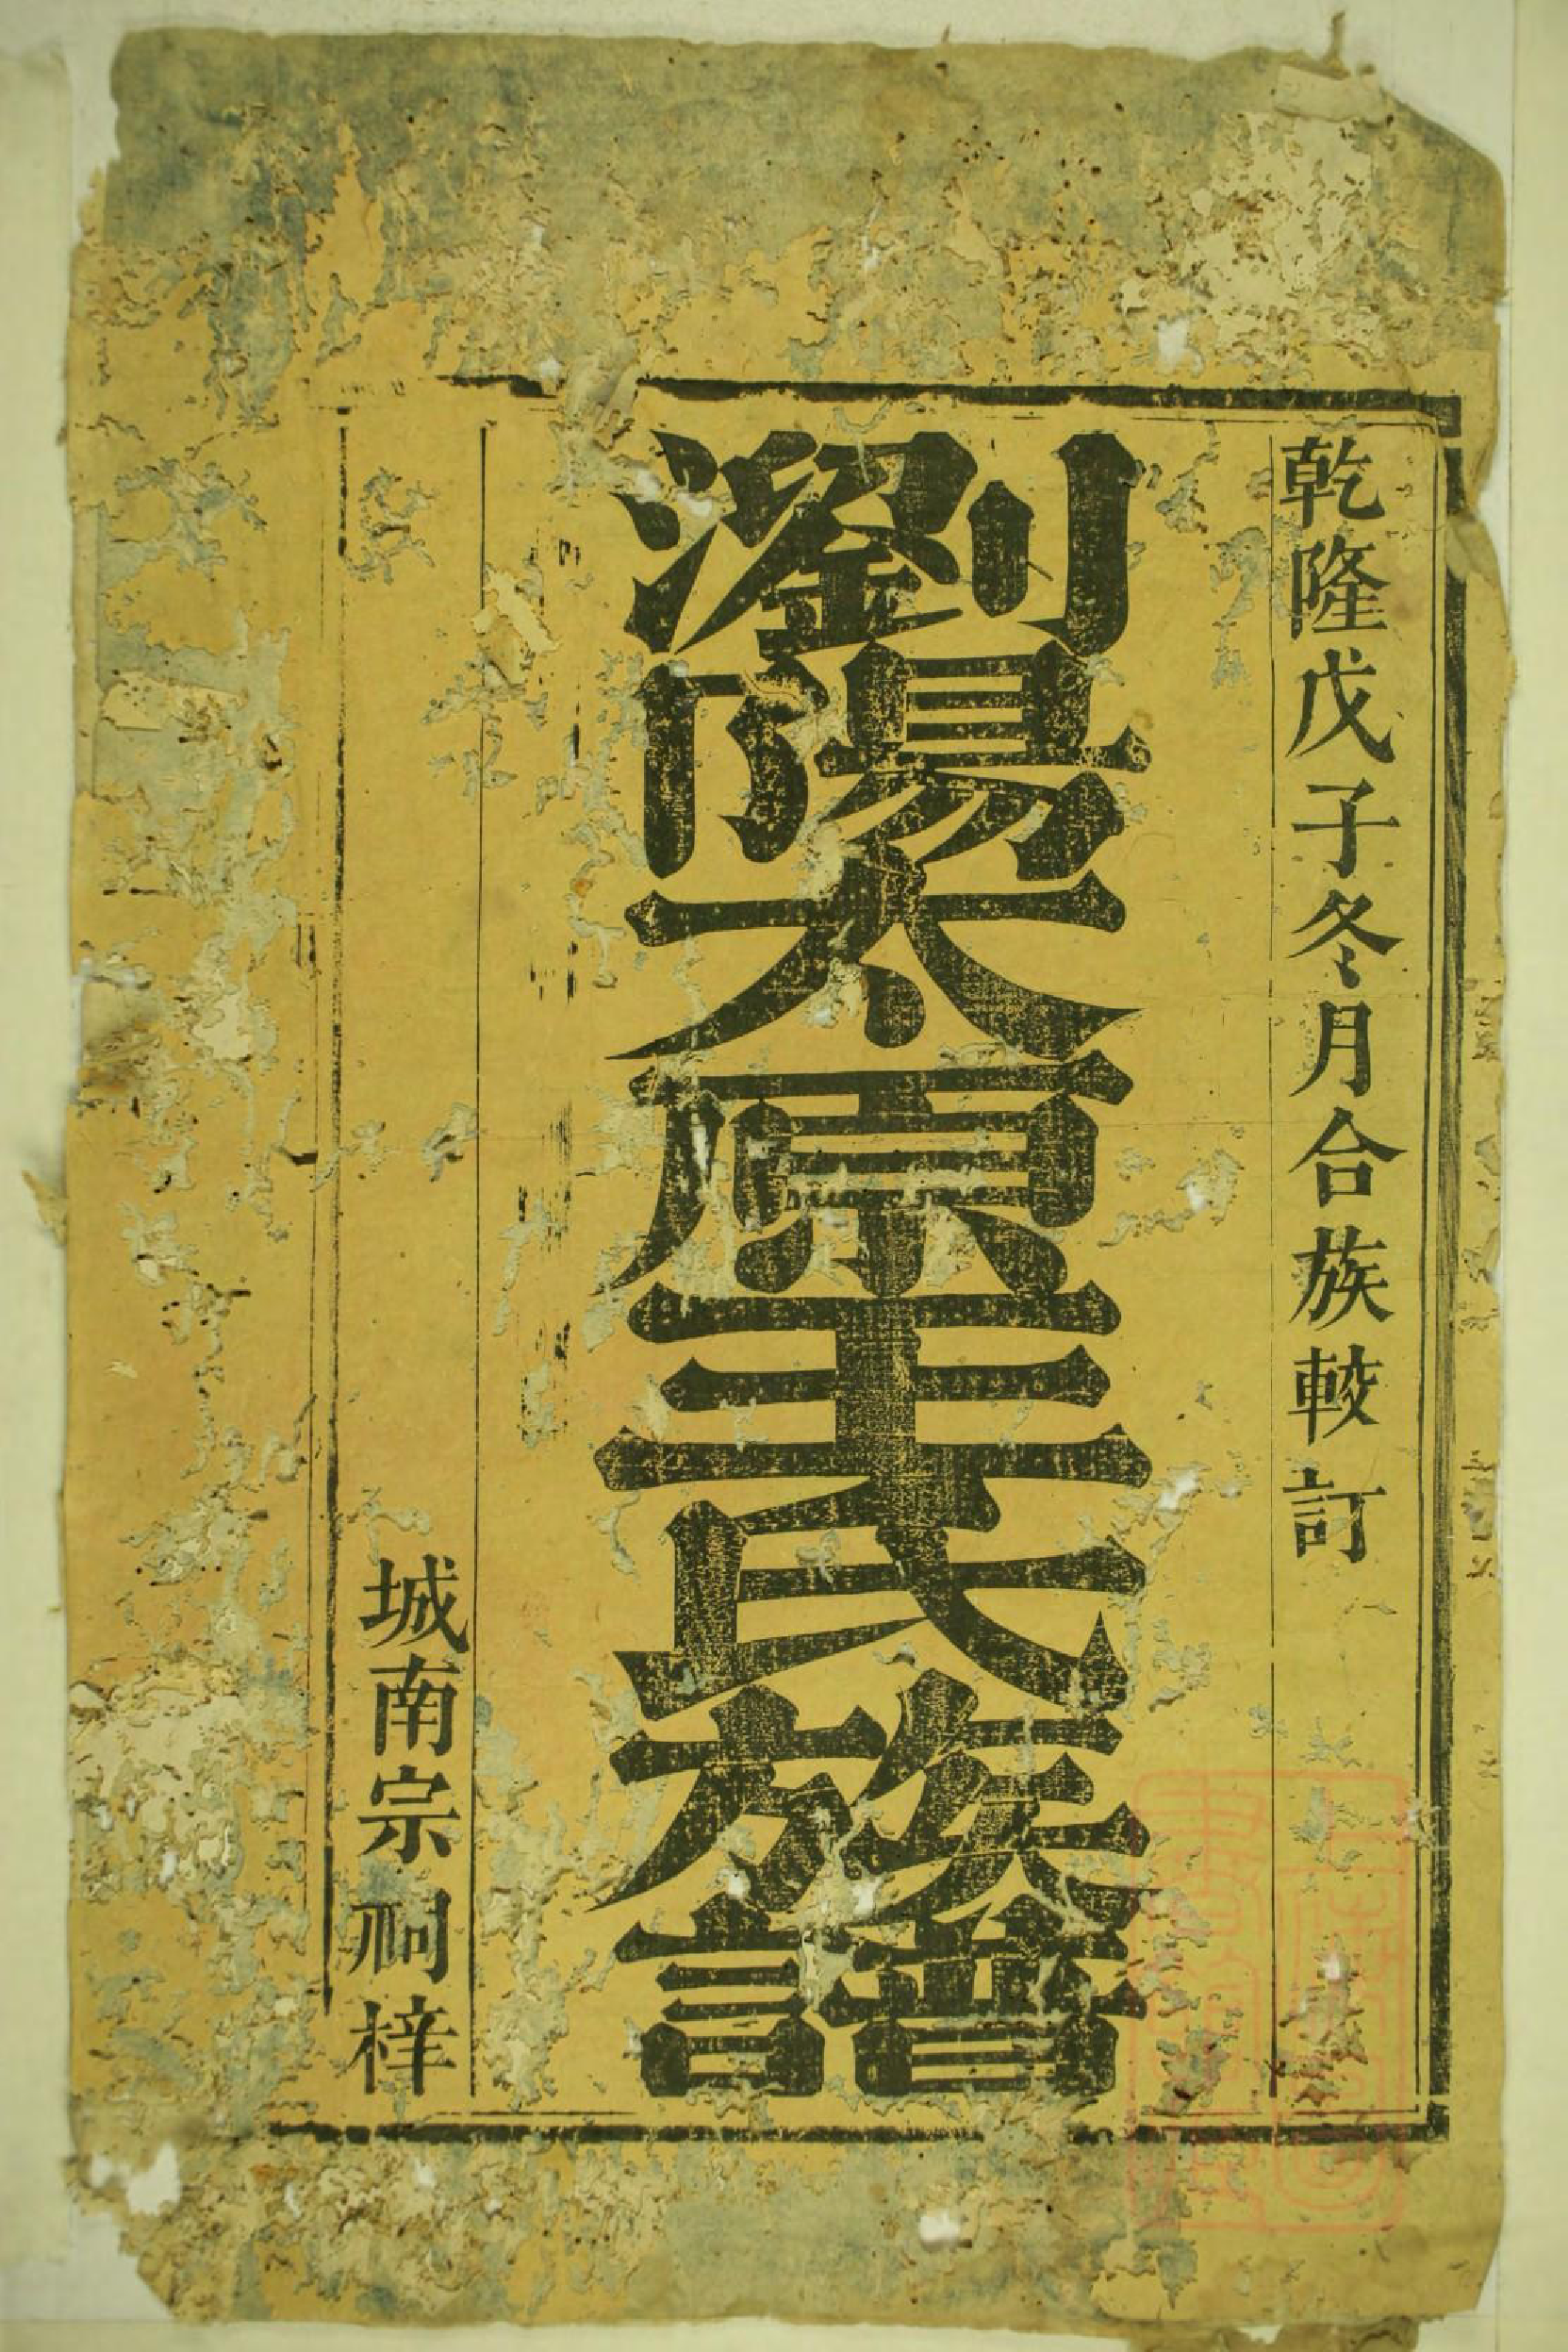 乾隆戊子冬月合族較訂
瀏陽太原王氏族譜
城南宗祠梓